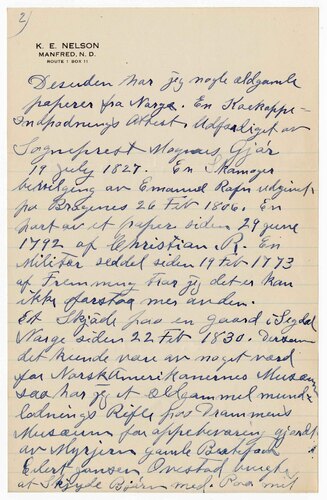 2)
K. E. NELSON
MANFRED, N. D.
ROUTE 1 BOX 11
Desuden har jeg nogle ældgamle
papirer fra Norge. En Koekoppe-
Indpodnings Attest Udfærdiget av
Sogneprest Magnus
19 July 1827. En
av Emanuel Rafn udgivet
paa Bragenes 26 Feb 1806. En
part av et papir siden 29 june
1792 af Christian R. En
Militær seddel siden 19 Feb 1773
af tror jeg det er kan
ikke forstaa mer anden.
Et Skjøde paa en gaard i Sigdal
Norge siden 22 Feb 1830. Dersom
det kunde være av noget værd
for Norsk Amerikanernes Museum
saa har jeg et ældgammel mund-
ladnings Rifle fra Drammens
Museum for opbevaring gjordt
av gamle Bestefader
Eilert Jansen Ovestad brugte
at Skyde Bjørn med. Paa mit